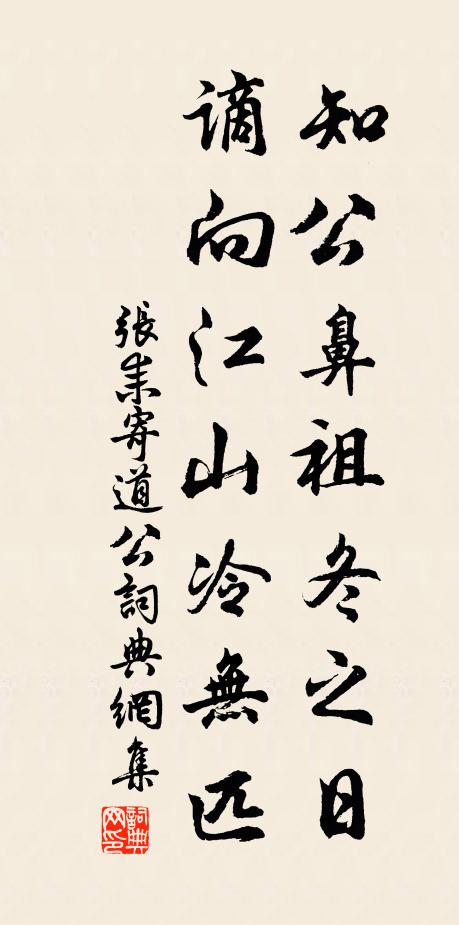 知公鼻祖冬之日
謫向江山冷無匹
張耒寄道公詞典網集
詞典
网印